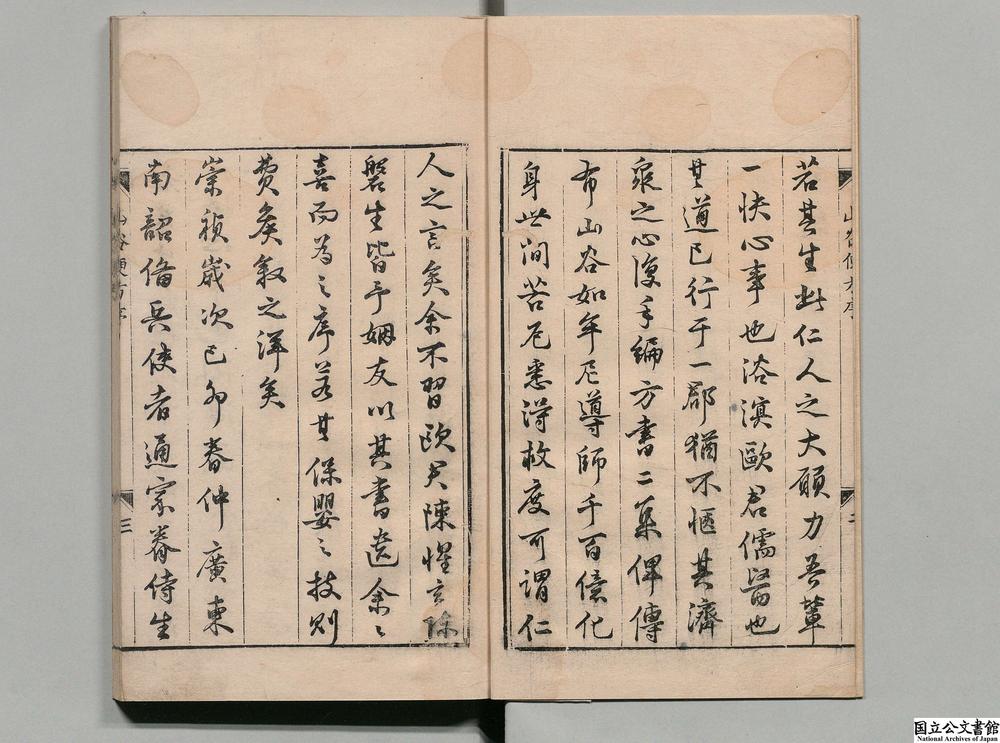 山谷便方序
二
若其生此仁人之大願力吾輩
一快心事也洛溟歐君儒醫也
其道已行于一郡猶不愜其濟
衆之心復手編方書二集俾傳
布山谷如牟尼導師千百億化
身世間苦厄悉得救度可謂仁
人之言矣余不習歐君陳惺玄陳
磐生皆予姻友以其書遺余々
喜而為之序若其保嬰之技則
費矦叙之詳矣
崇禎歲次己卯春仲廣東
南韶備兵使者通家眷侍生
山谷便方序
三
国立公文書館
National Archives of Japan